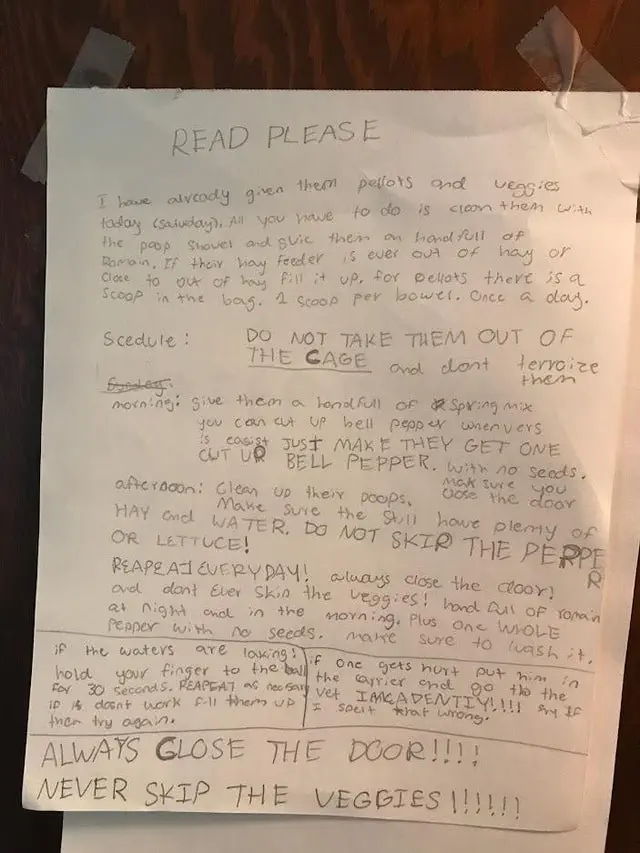 READ PLEASE
I have already given them pellots and veggies
today (saturday). All you have to do is clean them with
the poop shovel and give them an handfull of
Romain. If their hay feeder is ever out of hay or
Close to out of hay fill it up. for pellots there is a
scoop in the bag. 1 scoop per bowel. Once a day.
Scedule: DO NOT TAKE THEM OUT OF
THE CAGE and dont terroize
them
Sunday:
morning: give them a handfull of Spring mix
you can cut up bell pepper whenvers
is easist JUST MAKE THEY GET ONE
CUT UP BELL PEPPER. With no seeds.
afternoon: Clean up their poops. mak sure you
close the door
Make sure the still have plenty of
HAY and WATER. DO NOT SKIP THE PEPPER
OR LETTUCE!
REAPEAT EVERYDAY! always close the door!
and dont Ever skin the veggies! hand full of romain
at night and in the morning. Plus one WHOLE
Pepper with no seeds. make sure to wash it.
if the waters are laking:
hold your finger to the ball
for 30 seconds. REAPEAT as necesary
if is dosnt work fill them up
then try again.
if one gets hurt put him in
the carrier and go tho the
vet IMEADENTIY!!!! Sry If
I spelt that wrong.
ALWAYS CLOSE THE DOOR!!!!
NEVER SKIP THE VEGGIES!!!!!!